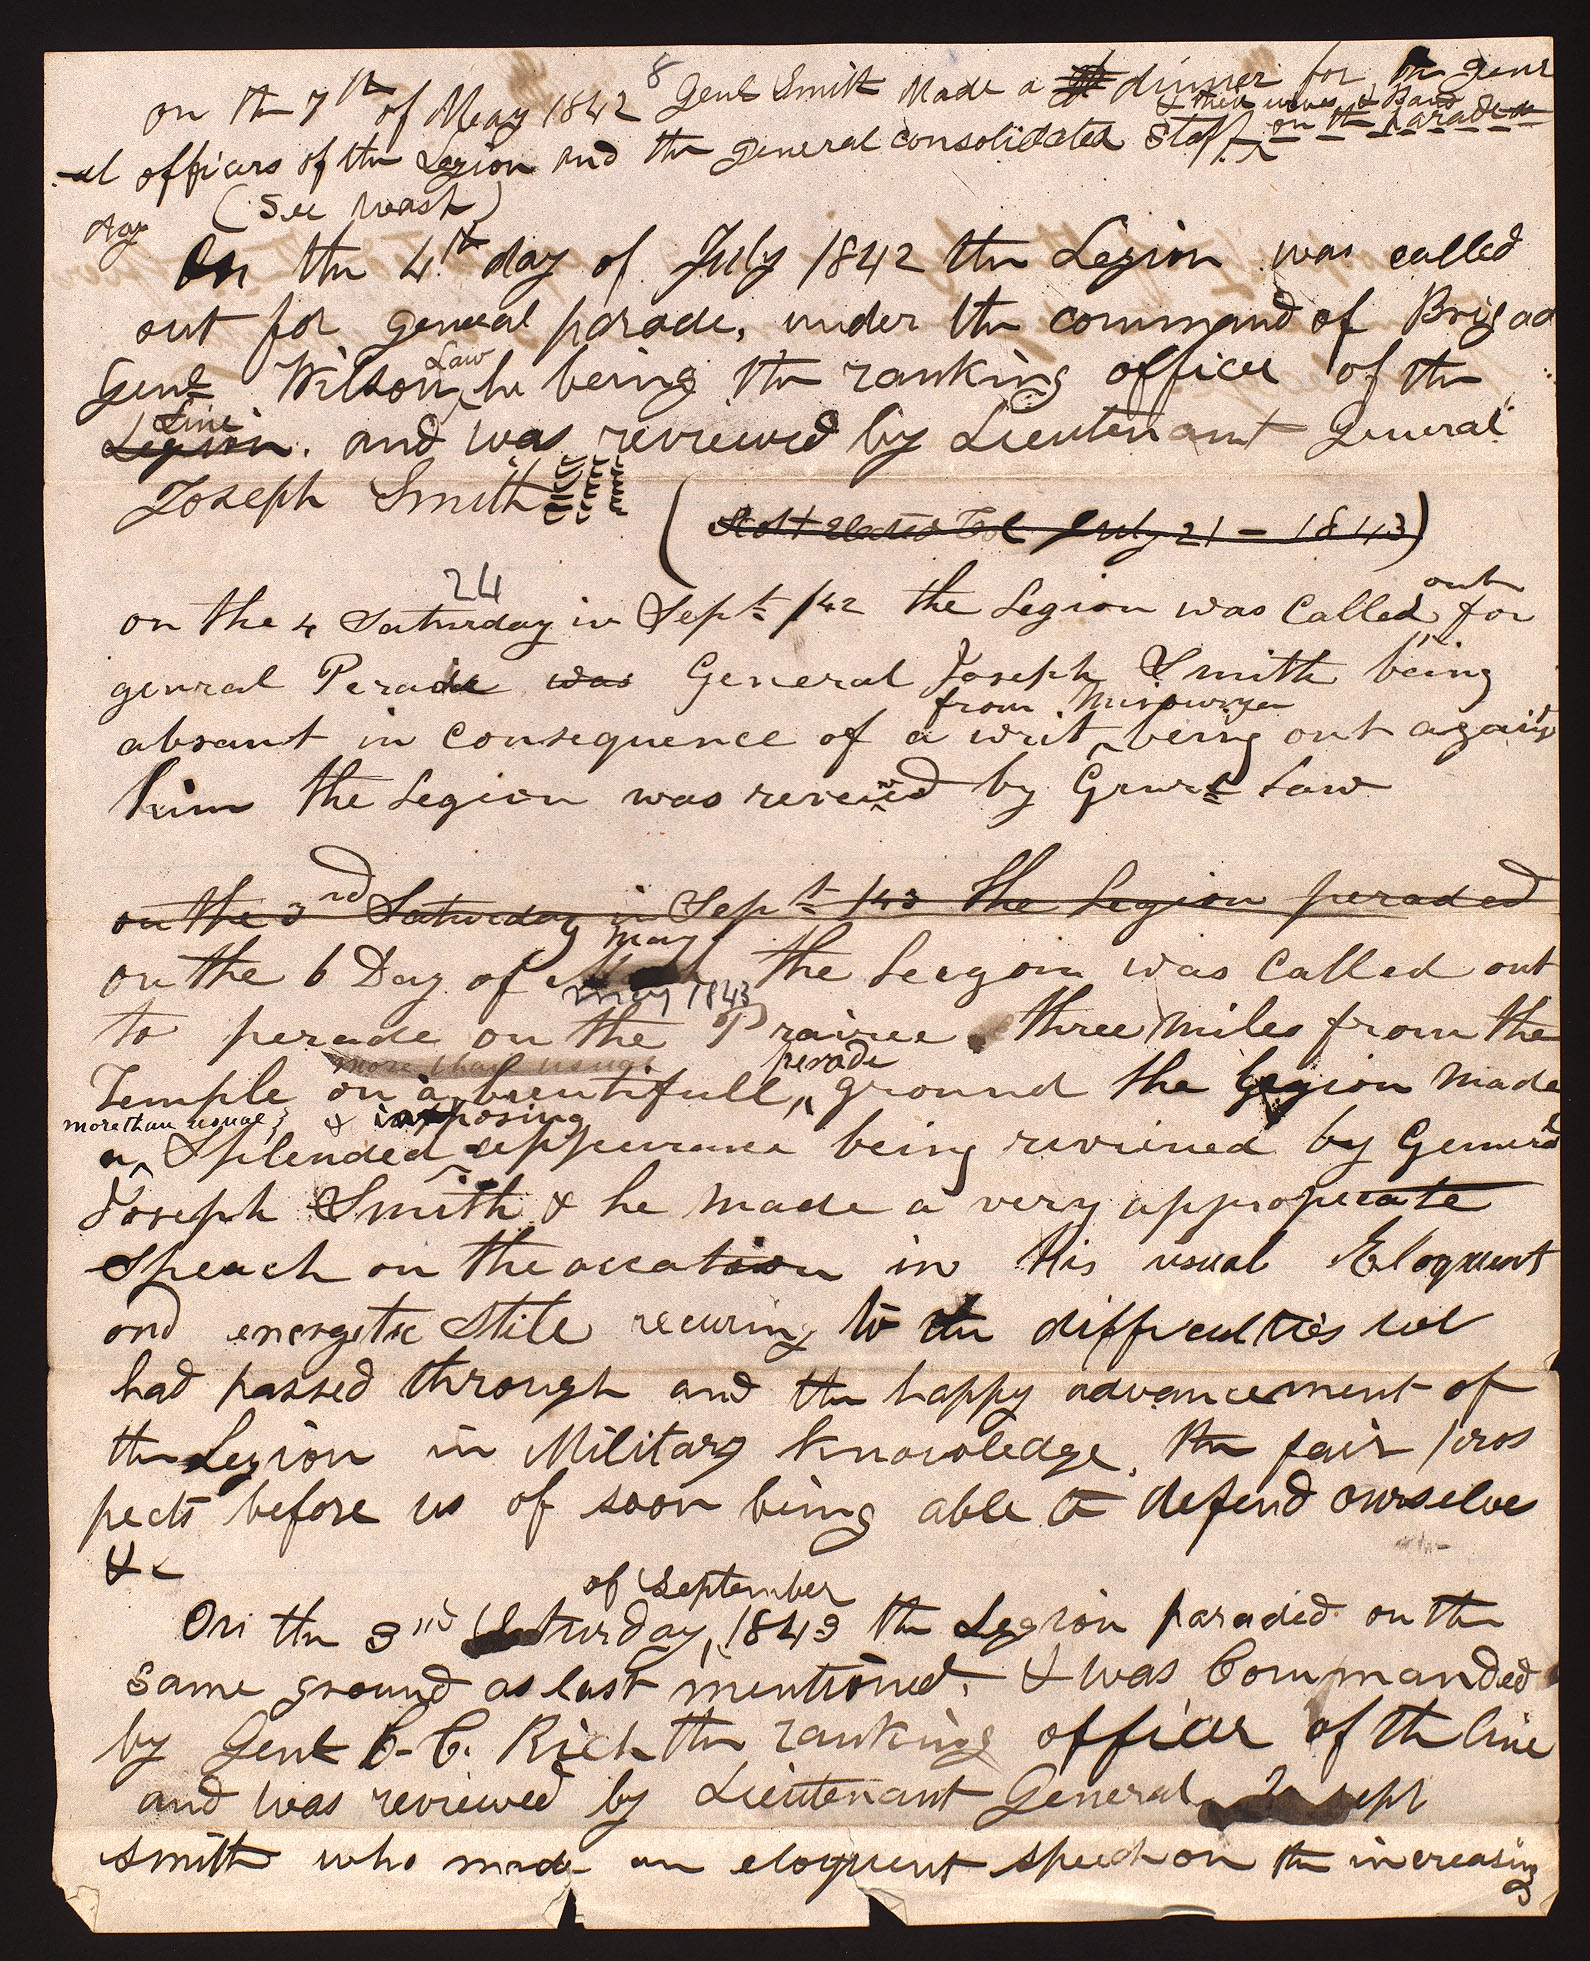 8
on th 7th of May 1842 Genl Smith made a dinner for th genr
& their wives & Band
-al officers of the Legion and the general consolidated Staff. on th parade
day (See Wash)
On the 4th day of July 1842 the Legion was called
out for general parade, under the command of Brigad
Law
Genl Wilson he being the ranking officer of the
Line
Legion. and was reviewed by Lieutenant General
Joseph Smith
July 21 - 1843)
24
out
on the 4 Saturday in Sept /42 the Legion was Called for
genral Perade was General Joseph Smith being
from
absant in Consequence of a writ being out against
him the Legion was reveiwed by Genrl Law
on the 3rd Saturday in Sept /43 the Legion peraded
may
on the 6 Day of the Leegion was Called out
may 1843
to perade on the Prairee three miles from the
more than usual perade
Temple on a beautifull ground the legion made
more than usual & imposing
a Splended appearance being reviewed by General
Joseph Smith & he made a very appropreate
Speach on the occation in his usual Eloquent
and energetic Stile recuring to the difficulties we
had passed through and the happy advancement of
the Legion in Military knowledge, the fair pros
pects before us of soon being able to defend ourselves
&c
of September
On the 3rd Saturday, 1843 the Legion paraded on the
same ground as last mentioned, & was Commanded
by Genl C. C. Rich the ranking officer of the line
and was reviewed by Lieutenant General Joseph
Smith who made an eloquent speech on the increasing